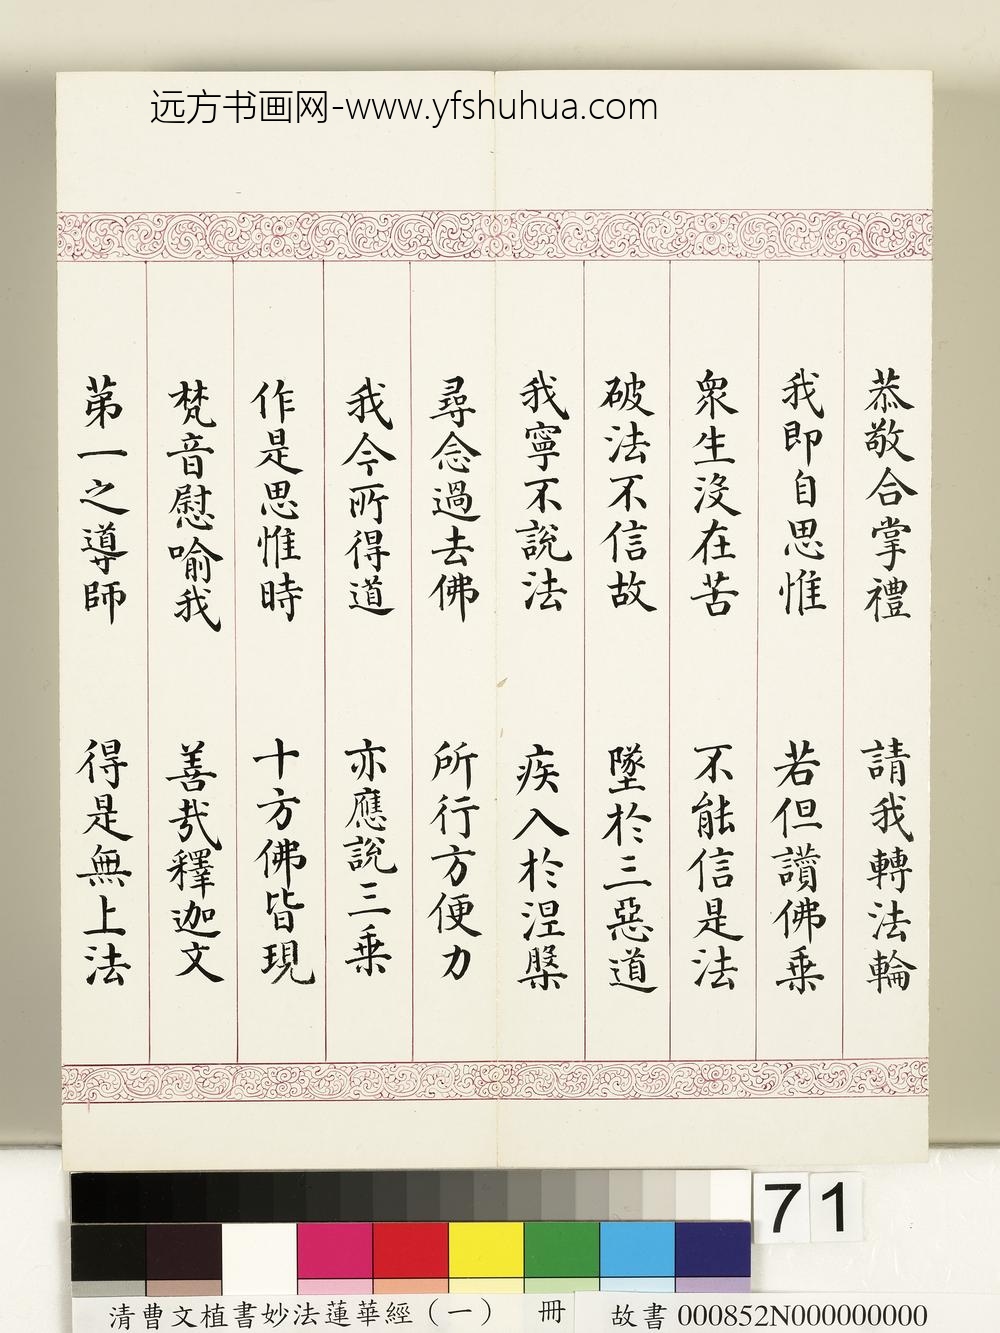 远方书画网-www.yfshuhua.com
恭敬合掌禮 請我轉法輪
我即自思惟 若但讚佛乗
衆生沒在苦 不能信是法
破法不信故 墜於三惡道
我寧不說法 疾入於涅槃
尋念過去佛 所行方便力
我今所得道 亦應說三乗
作是思惟時 十方佛皆現
梵音慰喻我 善哉釋迦文
第一之導師 得是無上法
71
清曹文植書妙法蓮華經（一） 冊 故書 000852N000000000